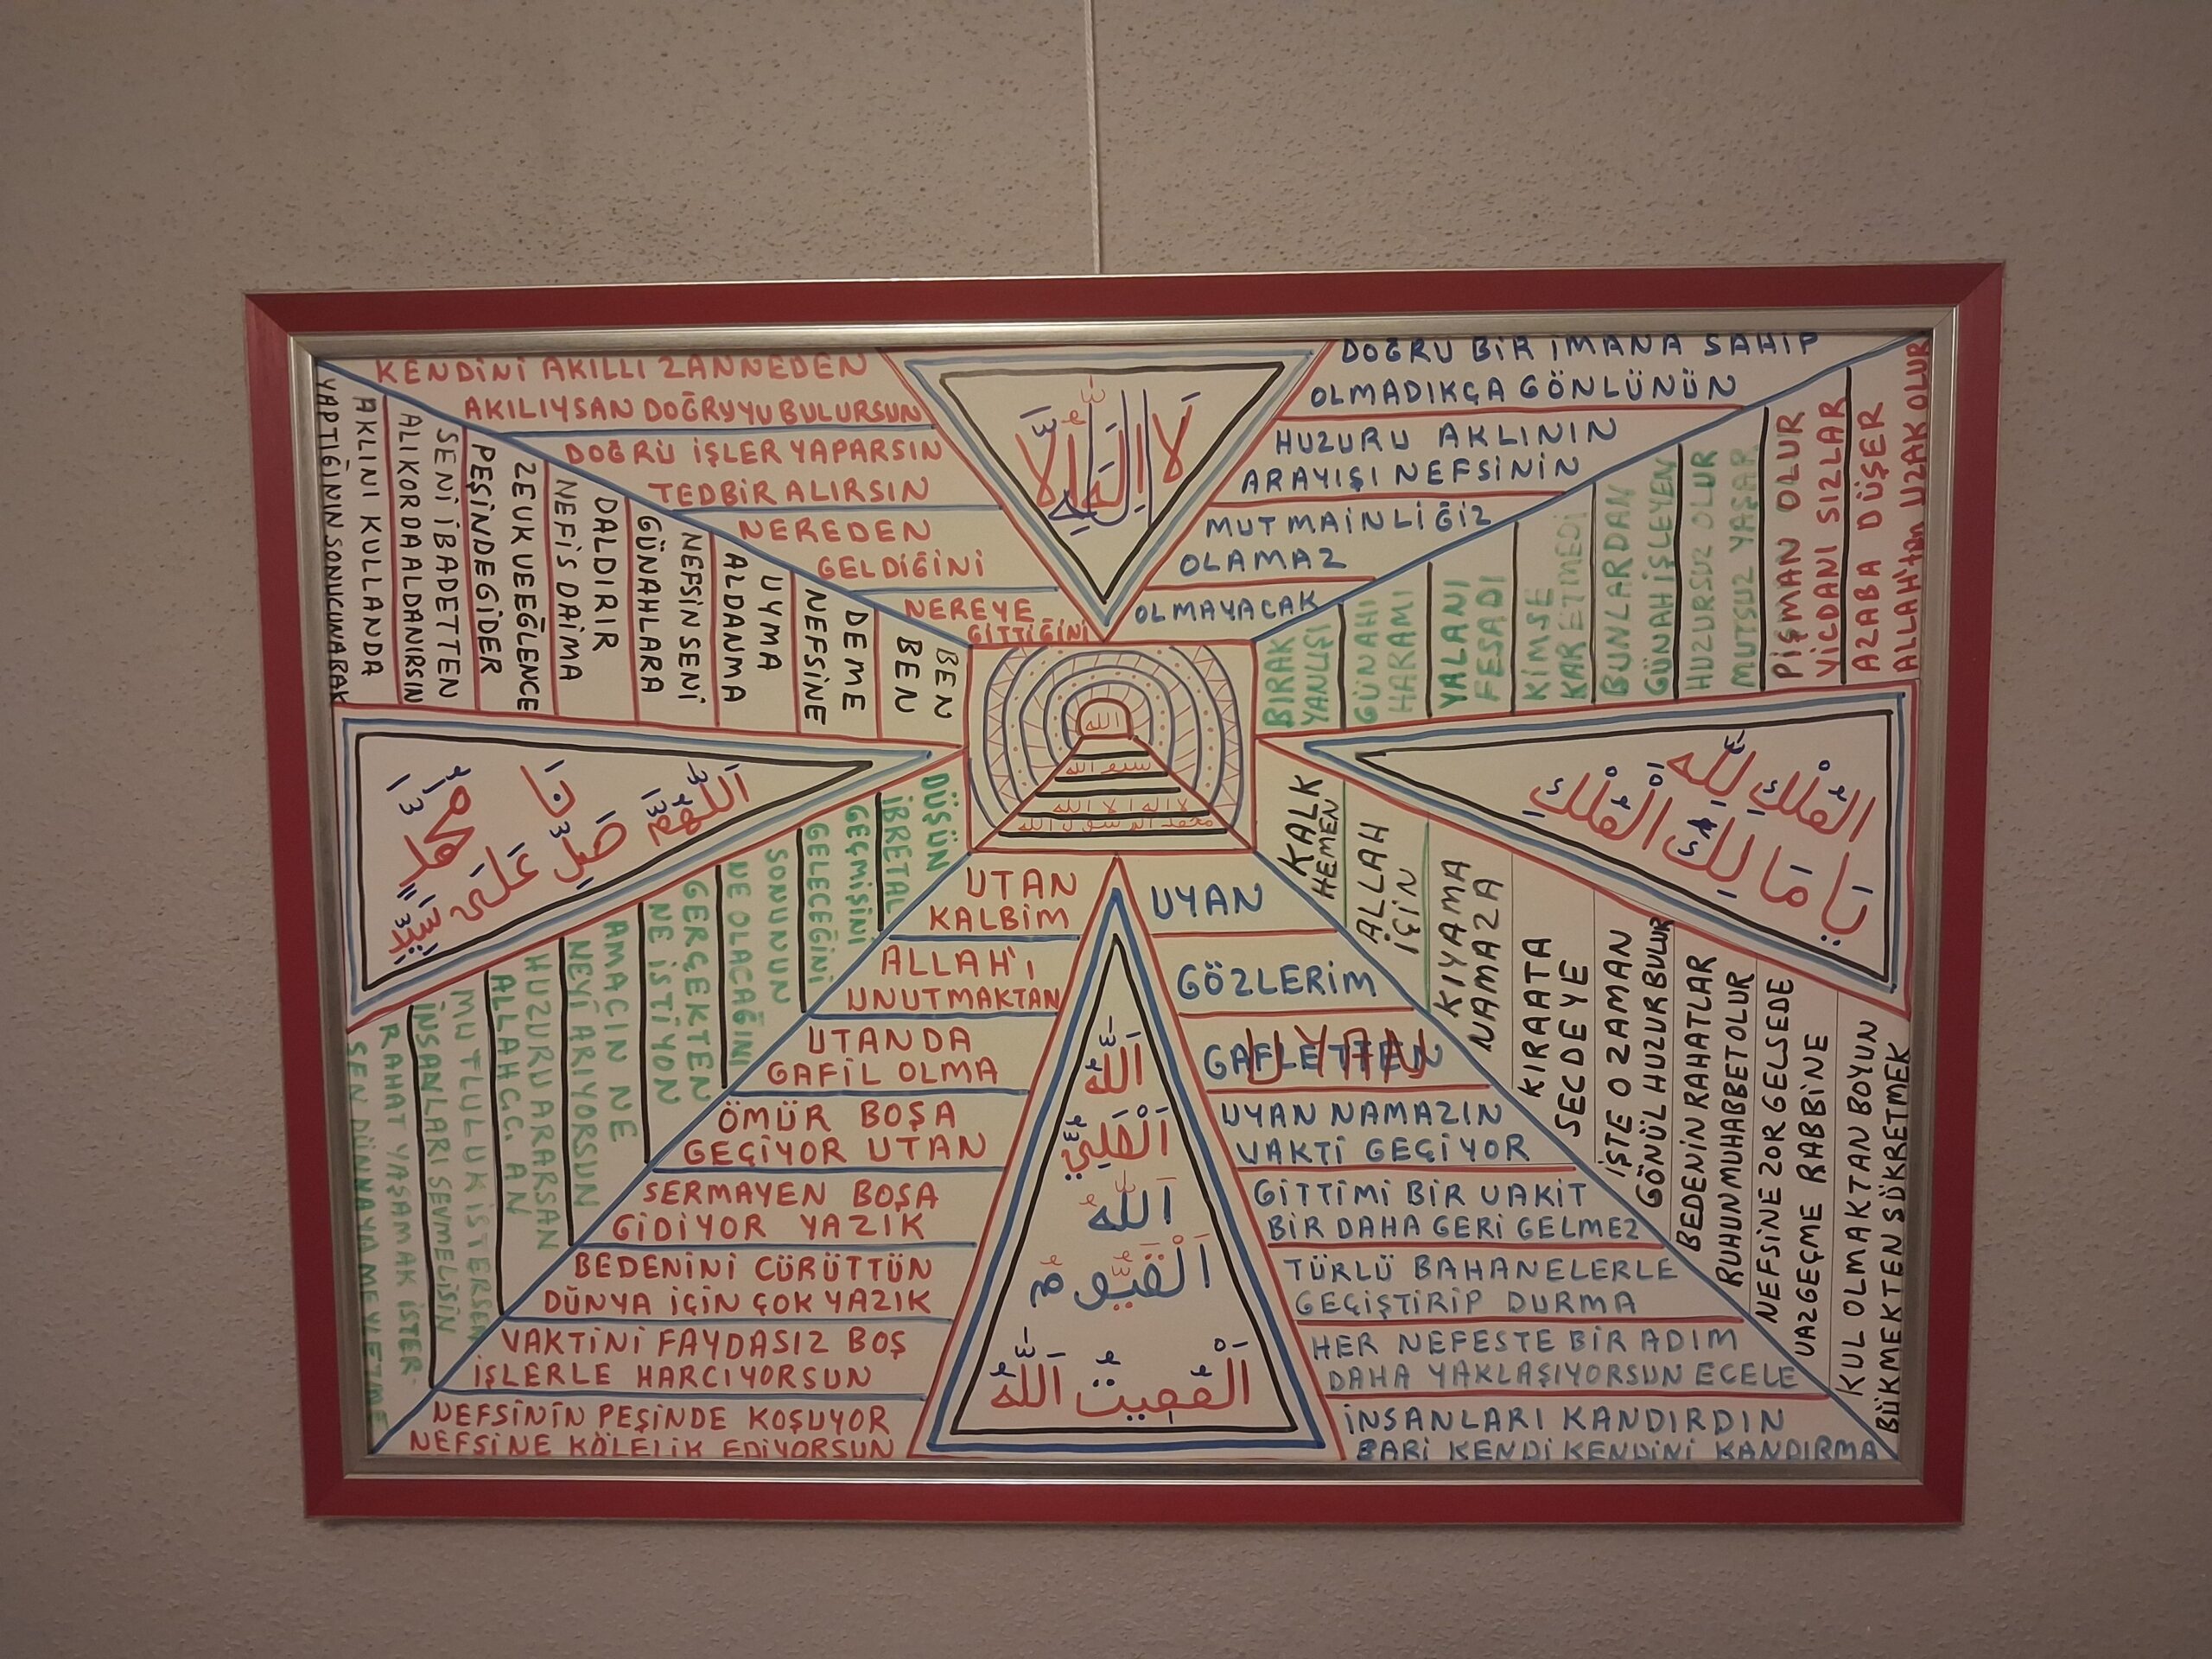 KENDİNİ AKILLI ZANNEDEN
AKILIYSAN DOĞRUYU BULURSUN
DOĞRU İŞLER YAPARSIN
TEDBİR ALIRSIN
NEREDEN
GELDİĞİNİ
NEREYE
GİTTİĞİNİ
لَا اِلٰهَ اِلَّا اللّٰهُ
DOĞRU BİR İMANA SAHİP
OLMADIKÇA GÖNLÜNÜN
HUZURU AKLININ
ARAYIŞI NEFSİNİN
MUTMAİNLİĞİZ
OLAMAZ
OLMAYACAK
BEN
BEN
DEME
NEFSİNE
UYMA
ALDANMA
NEFSİN SENİ
GÜNAHLARA
DALDIRIR
NEFİS DAİMA
ZEVK VE EĞLENCE
PEŞİNDE GİDER
SENİ İBADETTEN
ALIKOR DA ALDANIRSIN
AKLINI KULLANDA
YAPTIĞININ SONUCUNA BAK
BIRAK
YANLIŞI
GÜNAHI
HARAMI
YALANI
FESADI
KİMSE
KAR ETMEDİ
BUNLARDAN
GÜNAH İŞLEYEN
HUZURSUZ OLUR
MUTSUZ YAŞAR
PİŞMAN OLUR
VİCDANI SIZLAR
AZABA DÜŞER
ALLAH'tan UZAK OLUR
اَللّٰهُمَّ
صَلِّ عَلَى
الله
لا اله الا الله
محمد الرسول الله
يَا مَالِكَ الْمُلْكِ
الْمُلْكِ لِلّٰهِ
DÜŞÜN
İBRET AL
GEÇMİŞİNİ
GELECEĞİNİ
SONUNUN
NE OLACAĞINI
GERÇEKTEN
NE İSTİYON
AMACIN NE
NEYİ ARIYORSUN
HUZURU ARARSAN
ALLAH C.C. AN
MUTLULUK İSTERSEN
İNSANLARI SEVMELİSİN
RAHAT YAŞAMAK İSTER
SEN DÜNYAYA MEYLETME
UTAN
KALBİM
ALLAH'I
UNUTMAKTAN
UTANDA
GAFİL OLMA
ÖMÜR BOŞA
GEÇİYOR UTAN
SERMAYEN BOŞA
GİDİYOR YAZIK
BEDENİNİ CÜRÜTTÜN
DÜNYA İÇİN ÇOK YAZIK
VAKTİNİ FAYDASIZ BOŞ
İŞLERLE HARCIYORSUN
NEFSİNİN PEŞİNDE KOŞUYOR
NEFSİNE KÖLELİK EDİYORSUN
اَللّٰهُ
اَللّٰهُ
اَلْقَيُّومُ
اَللّٰهُ
UYAN
GÖZLERİM
GAFLETTEN
UYAN
UYAN NAMAZIN
VAKTİ GEÇİYOR
GİTTİMİ BİR VAKİT
BİR DAHA GERİ GELMEZ
TÜRLÜ BAHANELERLE
GEÇİŞTİRİP DURMA
HER NEFESTE BİR ADIM
DAHA YAKLAŞIYORSUN ECELE
İNSANLARI KANDIRDIN
BARİ KENDİ KENDİNİ KANDIRMA
KALK
HEMEN
ALLAH
İÇİN
KIYAMA
NAMAZA
KIRAATA
SECDEYE
İŞTE O ZAMAN
GÖNÜL HUZUR BULUR
BEDENİN RAHATLAR
RUHUN MUHABBET OLUR
NEFSİNE ZOR GELSEDE
VAZGEÇME RABBİNE
KUL OLMAKTAN BOYUN
BÜKMEKTEN ŞÜKRETMEK